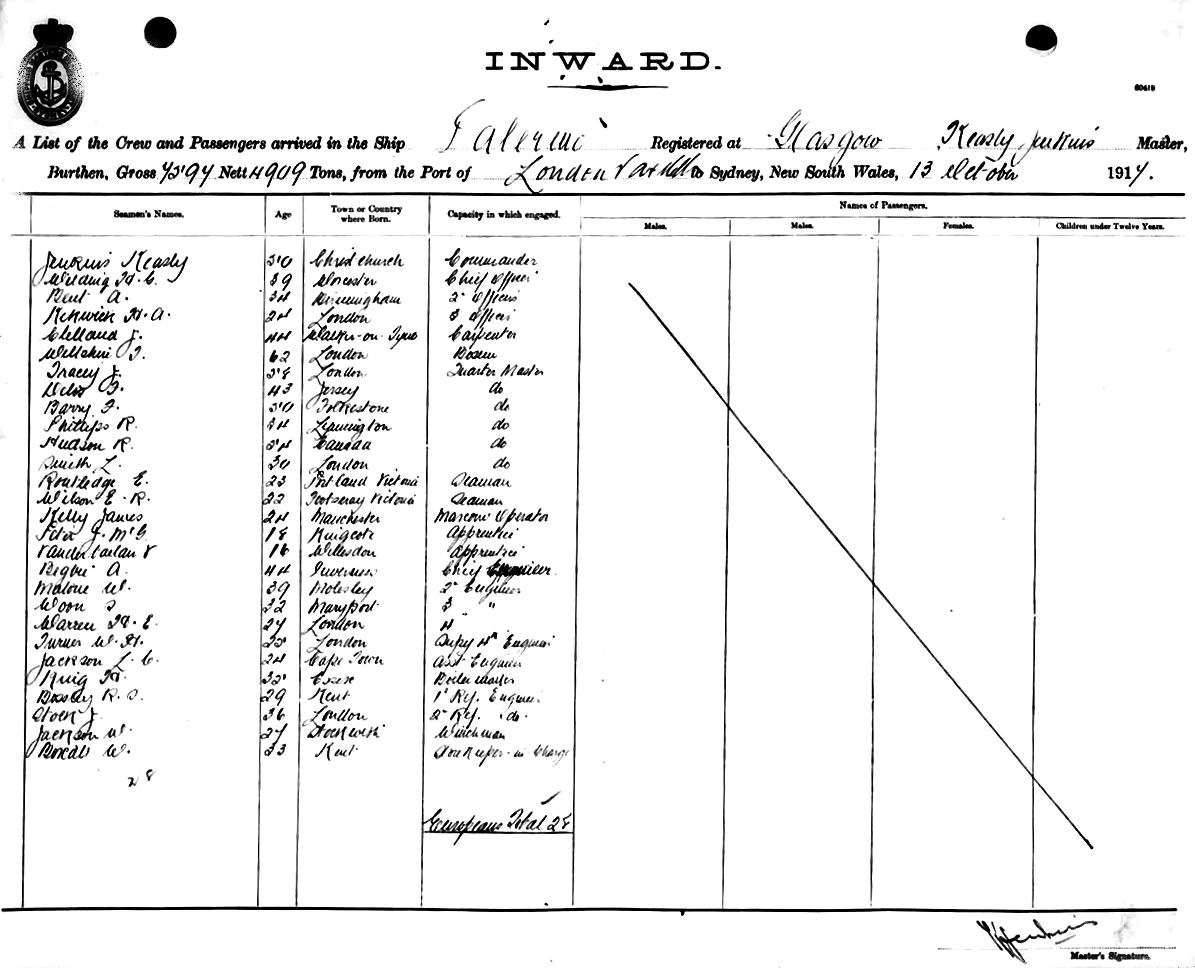 INWARD.
60619
A List of the Crew and Passengers arrived in the Ship Palermo Registered at Glasgow Keasly Jenkins Master,
Burthen, Gross 7597 Nett 4909 Tons, from the Port of London to Sydney, New South Wales, 13 October 1914.
Seamen's Names. Age Town or Country where Born. Capacity in which engaged. Names of Passengers.
Males. Males. Females. Children under Twelve Years.
Jenkins Keasly 50 Christchurch Commander
Wilding H. C. 39 Worcester Chief Officer
Bent A. 34 Birmingham 2" Officer
Kenwick H. A. 24 London 3 Officer
Clelland J. 44 Walker-on-Tyne Carpenter
Willshire 62 London Bosun
Tracey J. 58 London Quarter Master
43 Jersey do
Barry 50 Folkestone do
Phillips R. 34 Leamington do
Hudson R. 54 Canada do
Smith L. 30 London do
Routledge E. 23 Portland Victoria Seaman
Wilson E. R. 22 Footscray Victoria Seaman
Kelly James 24 Manchester Marconi Operator
J. McG. 18 Apprentice
16 Willesdon Apprentice
A. 44 Inverness Chief Engineer
Malone W. 39 Molesley 2" Engineer
Woon S 32 Maryport 3 "
Warren H. E. 27 London 4 "
Turner W. H. London 4th Engineer
Jackson L. C. 24 Cape Town Asst Engineer
King H. Essex Boilermaker
Bossey R. S. 29 Kent 1st Ref. Engineer
Stock J. 36 London 2" Ref. do.
Jackson W. 27 Winchman
Boxall W. 33 Kent Storekeeper-in Charge
28
Europeans Total 28
K Jenkins
Master's Signature.